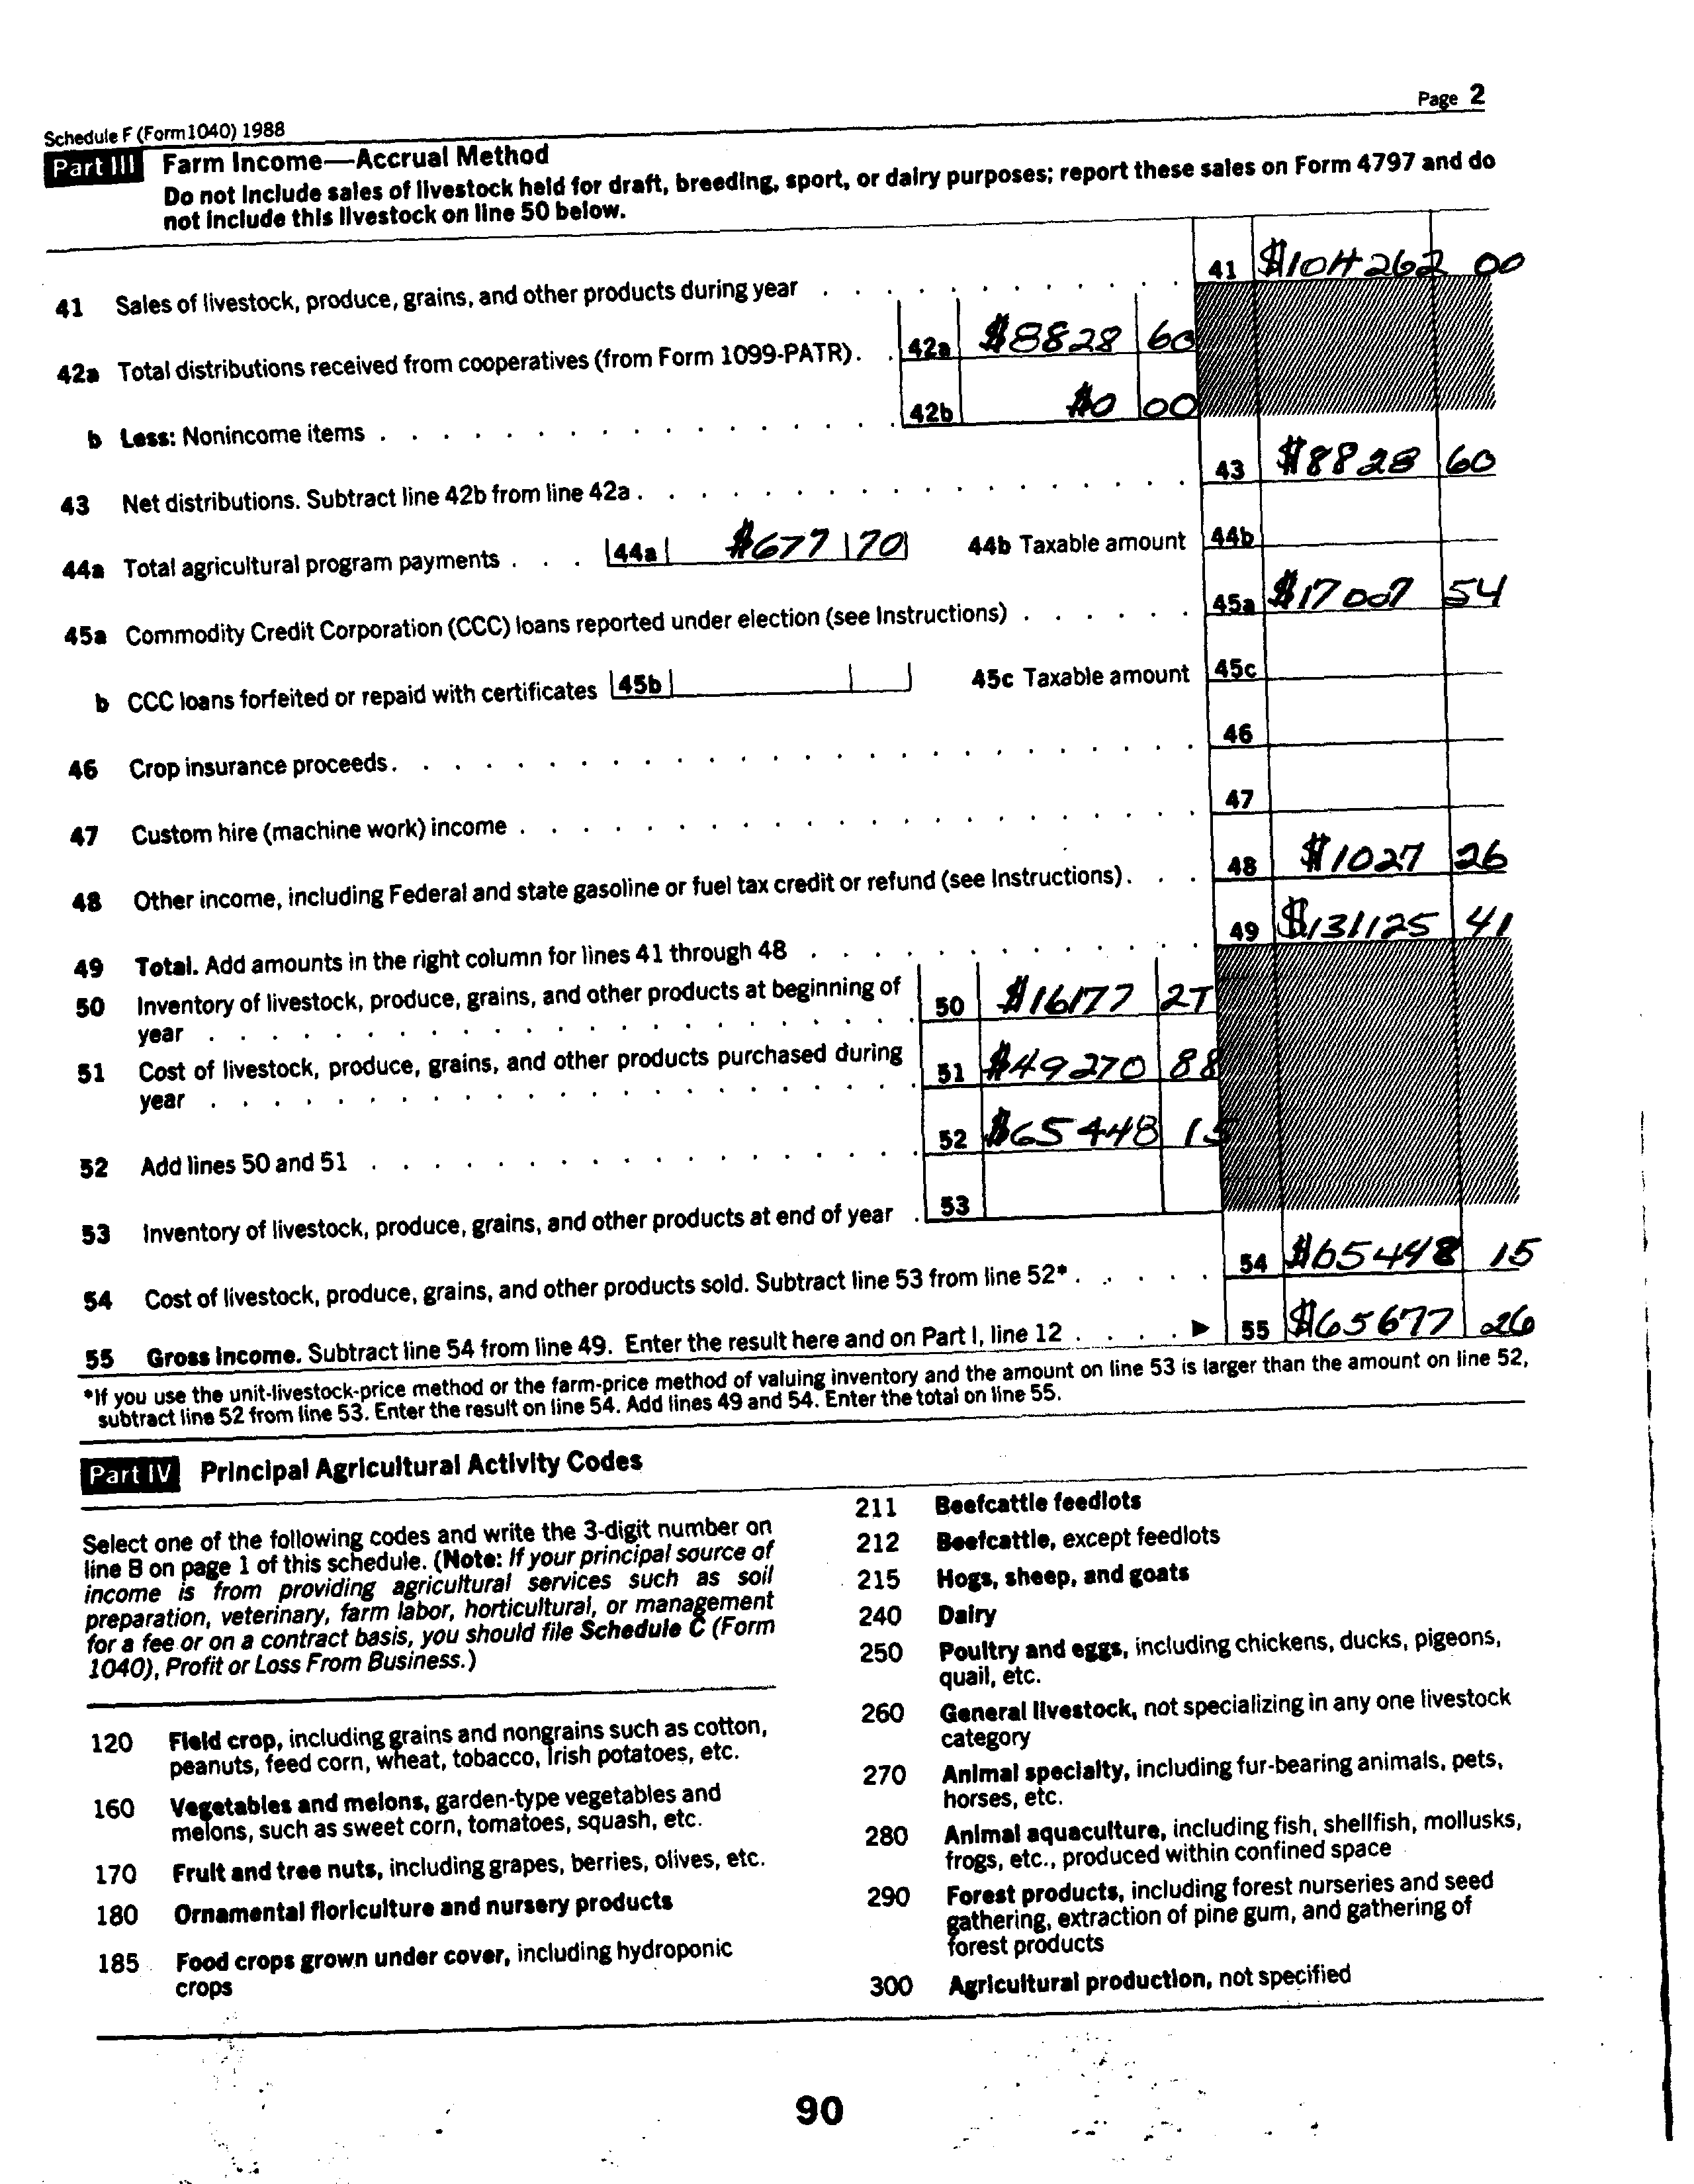 Schedule F (Form 1040) 1988 Page 2
Part III Farm Income—Accrual Method
Do not include sales of livestock held for draft, breeding, sport, or dairy purposes; report these sales on Form 4797 and do
not include this livestock on line 50 below.
41 Sales of livestock, produce, grains, and other products during year 41 $104262 00
42a Total distributions received from cooperatives (from Form 1099-PATR). 42a $8828 60
b Less: Nonincome items 42b $0 00
43 Net distributions. Subtract line 42b from line 42a 43 $8828 60
44a Total agricultural program payments 44a $677 70 44b Taxable amount 44b
45a Commodity Credit Corporation (CCC) loans reported under election (see Instructions) 45a $17007 54
b CCC loans forfeited or repaid with certificates 45b 45c Taxable amount 45c
46 Crop insurance proceeds 46
47 Custom hire (machine work) income 47
48 Other income, including Federal and state gasoline or fuel tax credit or refund (see Instructions). 48 $1027 26
49 Total. Add amounts in the right column for lines 41 through 48 49 $131125 41
50 Inventory of livestock, produce, grains, and other products at beginning of
year 50 $16177 27
51 Cost of livestock, produce, grains, and other products purchased during
year 51 $49270 88
52 Add lines 50 and 51 52 $65448 15
53 Inventory of livestock, produce, grains, and other products at end of year 53
54 Cost of livestock, produce, grains, and other products sold. Subtract line 53 from line 52* 54 $65448 15
55 Gross income. Subtract line 54 from line 49. Enter the result here and on Part I, line 12 55 $65677 26
*If you use the unit-livestock-price method or the farm-price method of valuing inventory and the amount on line 53 is larger than the amount on line 52,
subtract line 52 from line 53. Enter the result on line 54. Add lines 49 and 54. Enter the total on line 55.
Part IV Principal Agricultural Activity Codes
Select one of the following codes and write the 3-digit number on
line B on page 1 of this schedule. (Note: If your principal source of
income is from providing agricultural services such as soil
preparation, veterinary, farm labor, horticultural, or management
for a fee or on a contract basis, you should file Schedule C (Form
1040), Profit or Loss From Business.)
120 Field crop, including grains and nongrains such as cotton,
peanuts, feed corn, wheat, tobacco, Irish potatoes, etc.
160 Vegetables and melons, garden-type vegetables and
melons, such as sweet corn, tomatoes, squash, etc.
170 Fruit and tree nuts, including grapes, berries, olives, etc.
180 Ornamental floriculture and nursery products
185 Food crops grown under cover, including hydroponic
crops
211 Beefcattle feedlots
212 Beefcattle, except feedlots
215 Hogs, sheep, and goats
240 Dairy
250 Poultry and eggs, including chickens, ducks, pigeons,
quail, etc.
260 General livestock, not specializing in any one livestock
category
270 Animal specialty, including fur-bearing animals, pets,
horses, etc.
280 Animal aquaculture, including fish, shellfish, mollusks,
frogs, etc., produced within confined space
290 Forest products, including forest nurseries and seed
gathering, extraction of pine gum, and gathering of
forest products
300 Agricultural production, not specified
90